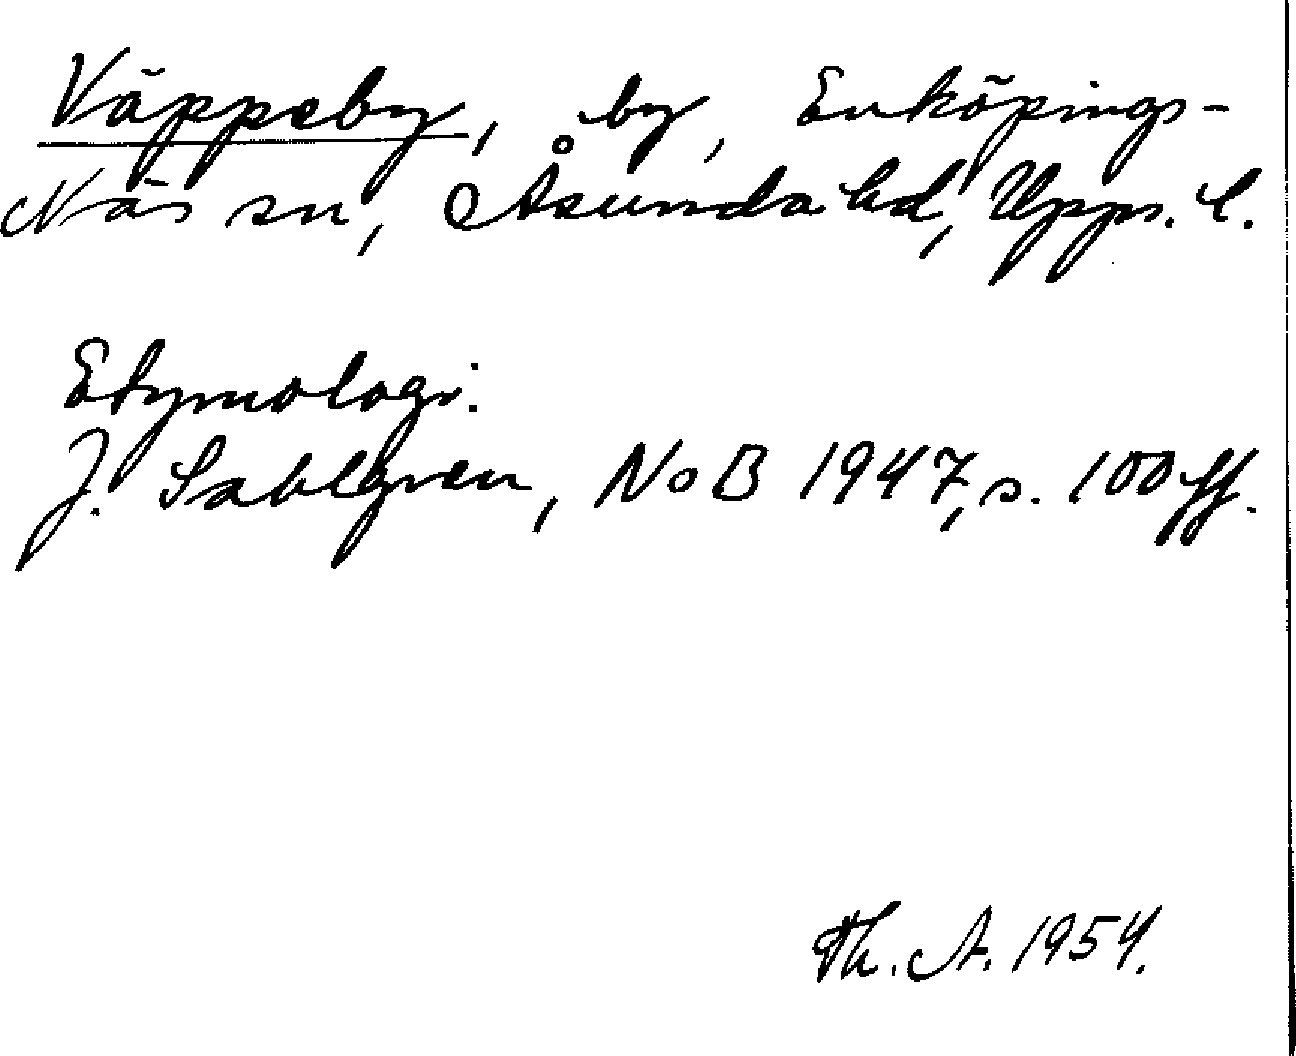 Väppeby, by, Enköpings-
Näs sn, Åsunda hd, Upps. l.
Etymologi:
J. Sahlgren, NoB 1947, s. 100 ff.
Th. A. 1954.